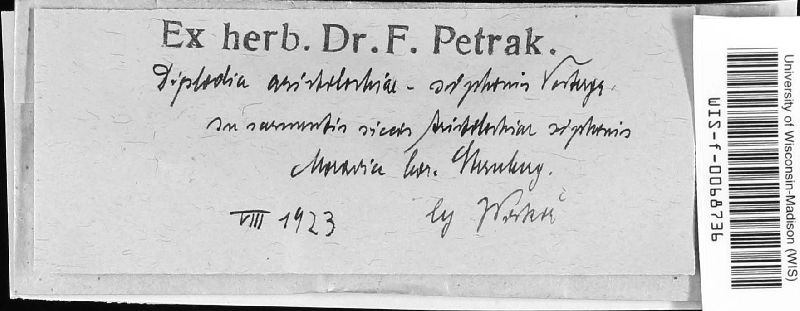 Ex herb. Dr. F. Petrak.
Diplodia aristolochiae - siphonis Vesterg.
in sarmentis siccis Aristolochiae siphonis
Moravia bor. Sternberg.
VIII 1923 lg
University of Wisconsin-Madison (WIS)
WIS-f-0068736